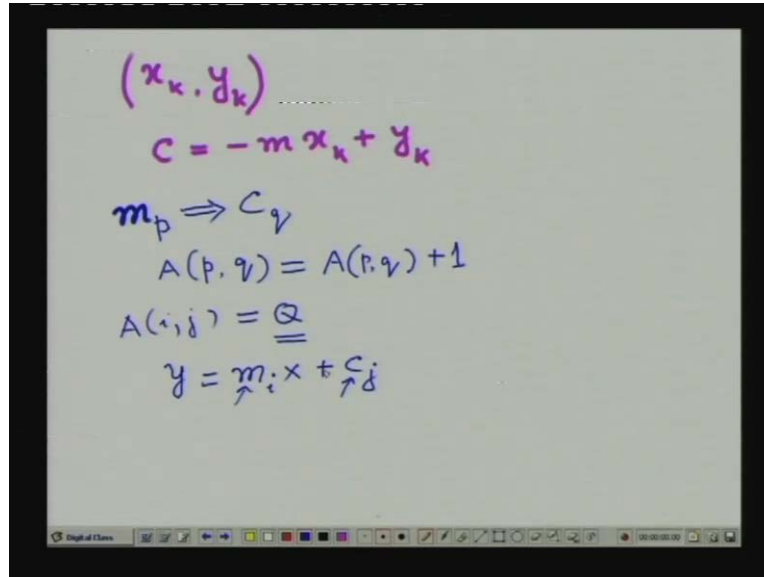 (x_k, y_k)
C = -m x_k + y_k
m_p ⇒ C_q
A(p, q) = A(p, q) + 1
A(i, j) = Q
y = m_i x + c_j
Digital Class
00:00:00.00